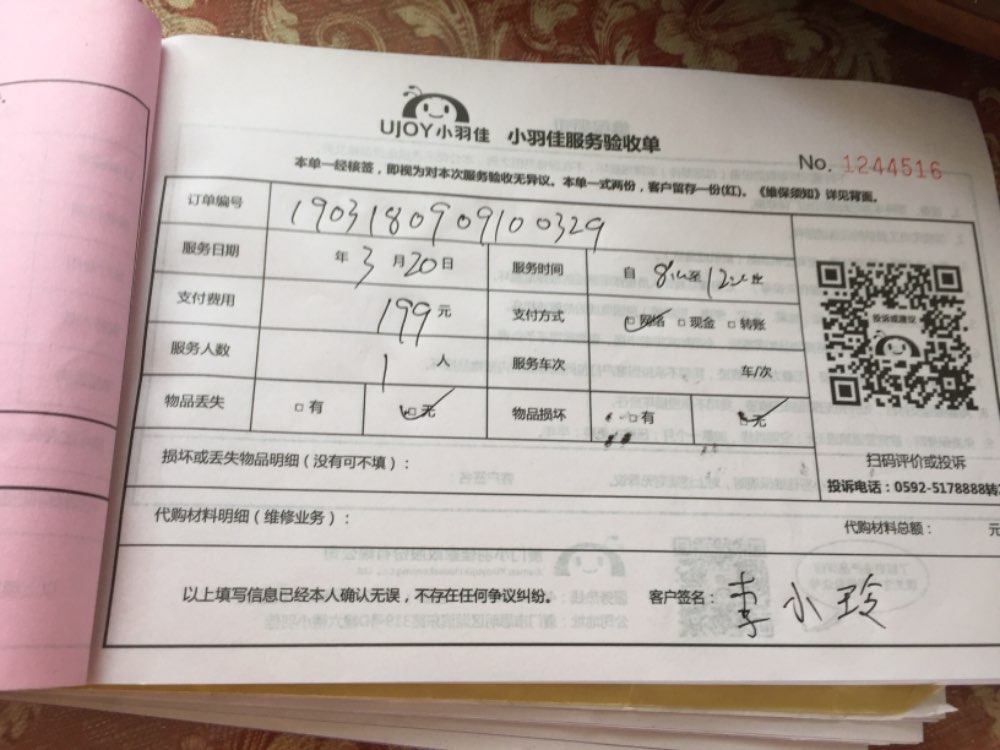 UJOY小羽佳 小羽佳服务验收单
No. 1244516
本单一经核签，即视为对本次服务验收无异议。本单一式两份，客户留存一份(红)。《维保须知》详见背面。
订单编号 1903180909100329
服务日期 年 3 月 20 日 服务时间 自 8 至 12
支付费用 199 元 支付方式 □网络 □现金 □转账
投诉或建议
服务人数 1 人 服务车次 车/次
物品丢失 □有 □无 物品损坏 □有 □无
损坏或丢失物品明细（没有可不填）：
扫码评价或投诉
投诉电话：0592-5178888转
代购材料明细（维修业务）： 代购材料总额： 元
以上填写信息已经本人确认无误，不存在任何争议纠纷。 客户签名：李小玲